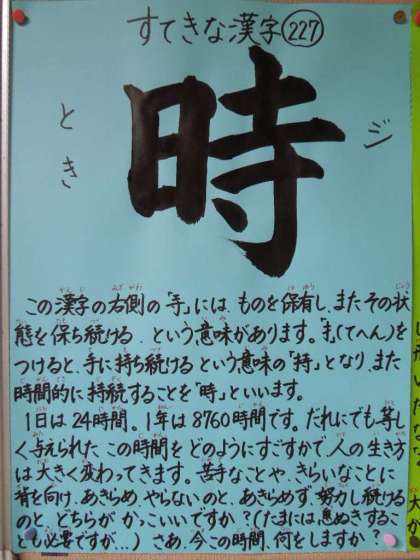 すてきな漢字 227
とき
時
ジ
この漢字の右側の「寺」には、ものを保有し、またその状
態を保ち続ける、という意味があります。「扌」(てへん)を
つけると、手に持ち続けるという意味の「持」となり、また
時間的に持続することを「時」といいます。
1日は24時間。1年は8760時間です。だれにでも等し
く与えられた、この時間を どのようにすごすかで、人の生き方
は大きく変わってきます。苦手なことや、きらいなことに
背を向け、あきらめ やらないのと、あきらめず、努力し続ける
のと、どちらが かっこいいですか?(たまには息ぬきするこ
とも必要ですが…) さあ、今この時間、何をしますか?